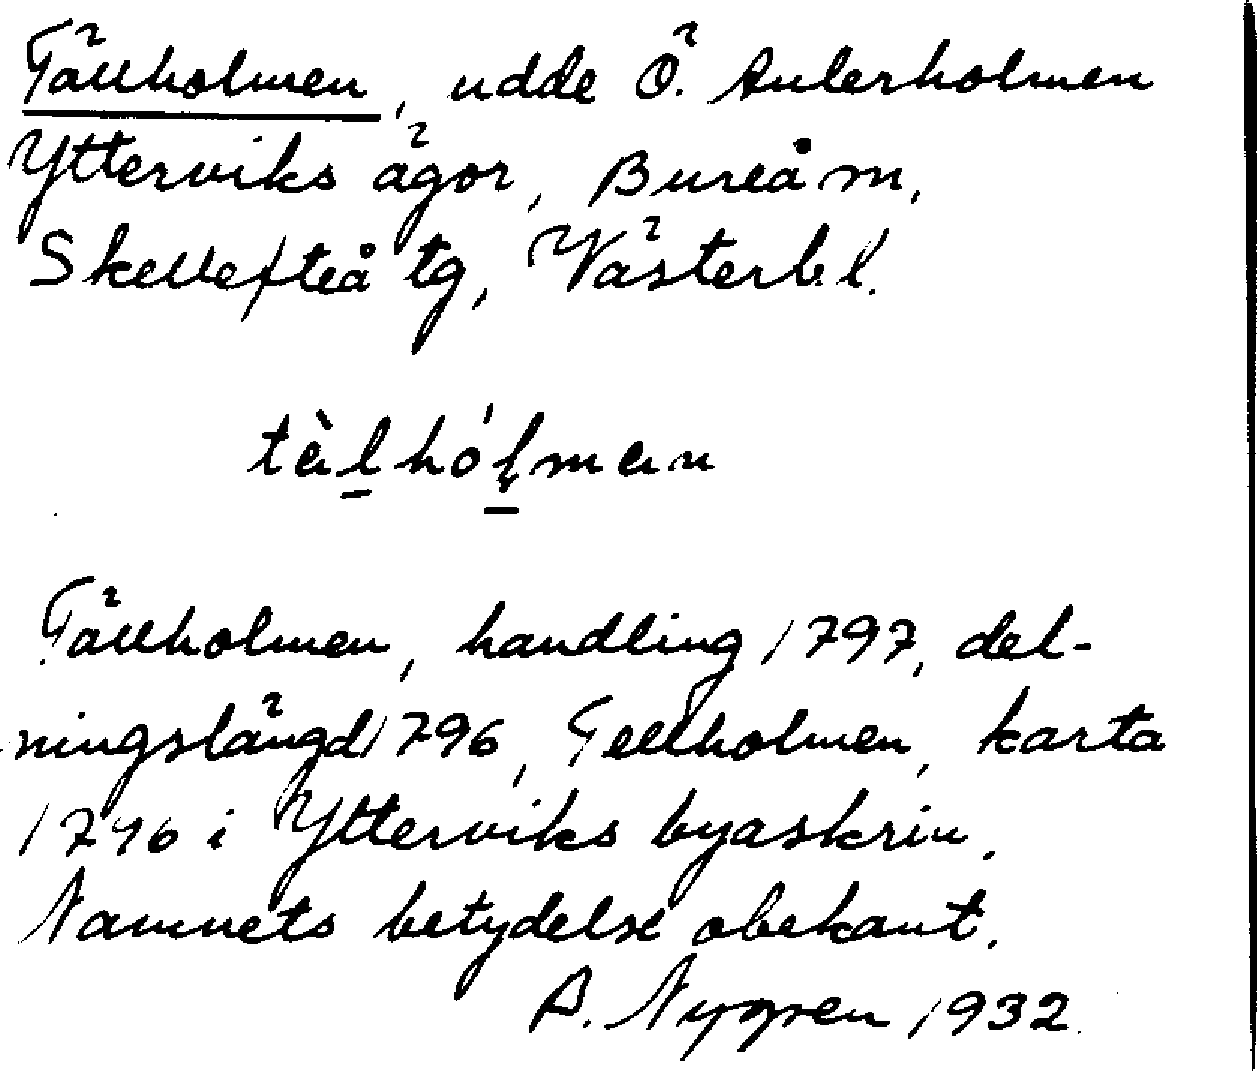 Tällholmen, udde Ö. Aulerholmen
Ytterviks ägor, Bureå m,
Skellefteå tg, Västerb l.
tàlhólman
Tällholmen, handling 1797, del-
ningslängd 1796, Tellholmen, karta
1796 i Ytterviks byaskrin.
Namnets betydelse obekant.
A. Nygren 1932